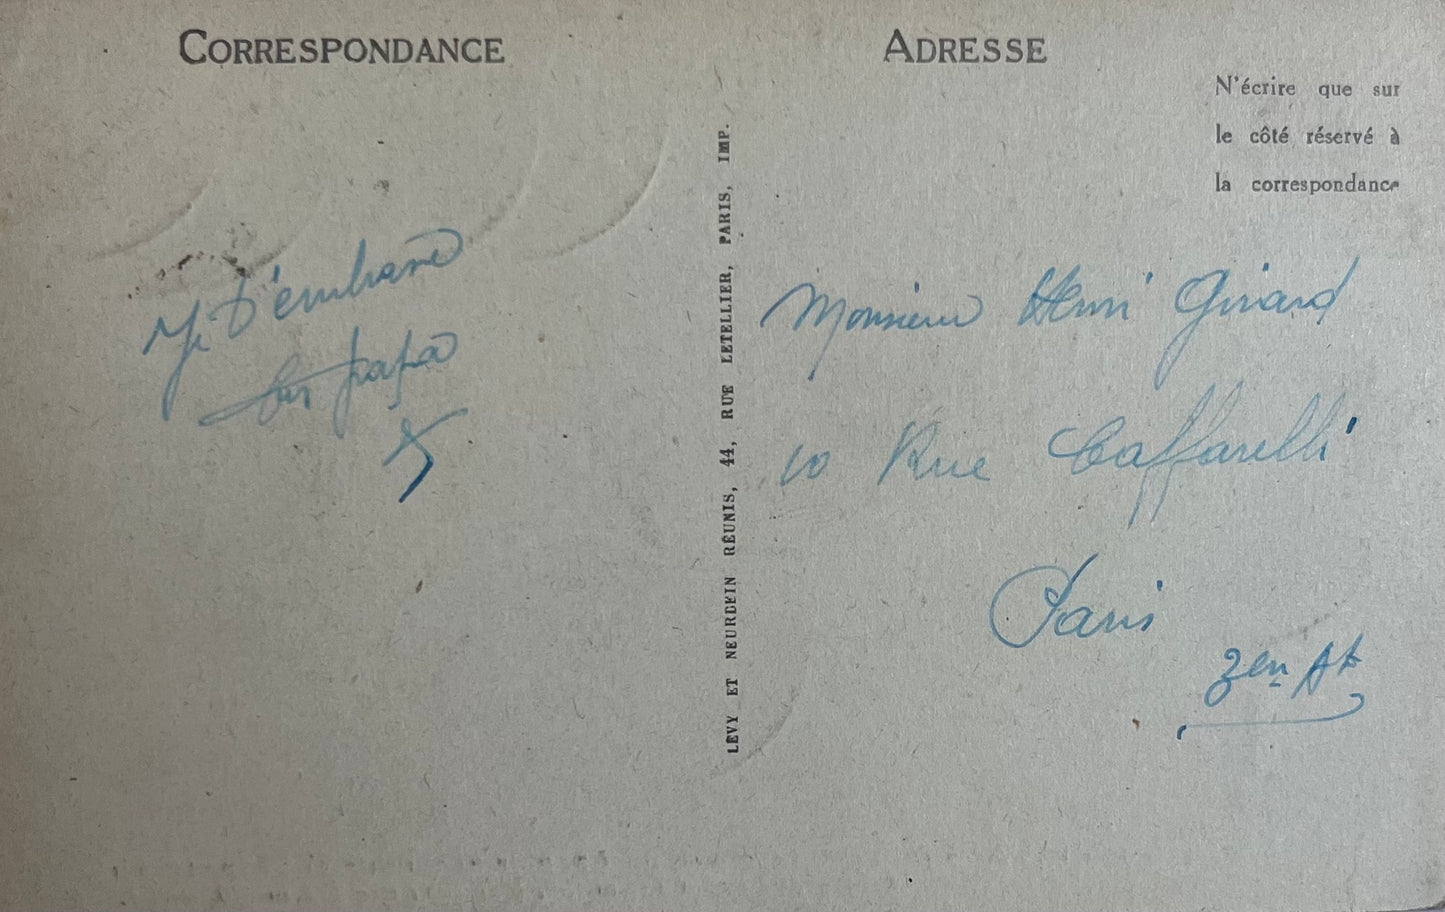 CORRESPONDANCE
Je t'embrasse
ton papa
LÉVY ET NEURDEIN RÉUNIS, 44, RUE LETELLIER, PARIS, IMP.
ADRESSE
N'écrire que sur
le côté réservé à
la correspondance
Monsieur Henri Girard
10 Rue Caffarelli
Paris
3en At